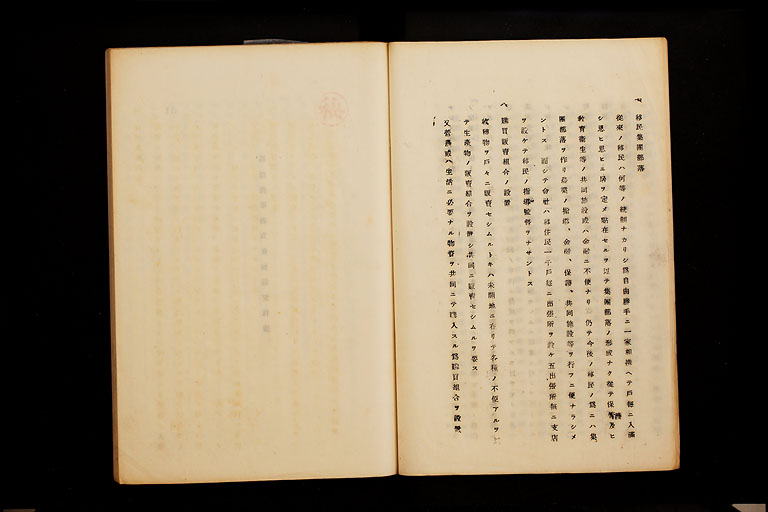 移民集團部落
從來ノ移民ハ何等ノ統制ナカリシ爲自由勝手ニ一家相携ヘテ戸每ニ入滿
シ思ヒ思ヒニ居ヲ定メ點在セルヲ以テ集團部落ノ形成ナク從テ保護及ヒ
敎育衞生等ノ共同施設或ハ金融ニ不便ナリ 仍テ今後ノ移民ノ爲ニハ集
團部落ヲ作リ農業ノ指導、金融、保護、共同施設等ヲ行フニ便ナラシメ
ントス 而シテ會社ハ移住民一千戸每ニ出張所ヲ設ケ五出張所每ニ支店
ヲ設ケテ移民ノ指導監督ヲナサントス
八 購買販賣組合ノ設置
收穫物ヲ戸々ニ販賣セシムルトキハ未開地ニ在リテ各種ノ不便アルヲ
テ生產物ノ販賣組合ヲ設置シ共同ニ販賣セシムルヲ要ス
又營農或ハ生活ニ必要ナル物資ヲ共同ニテ購入スル爲購買組合ヲ設置